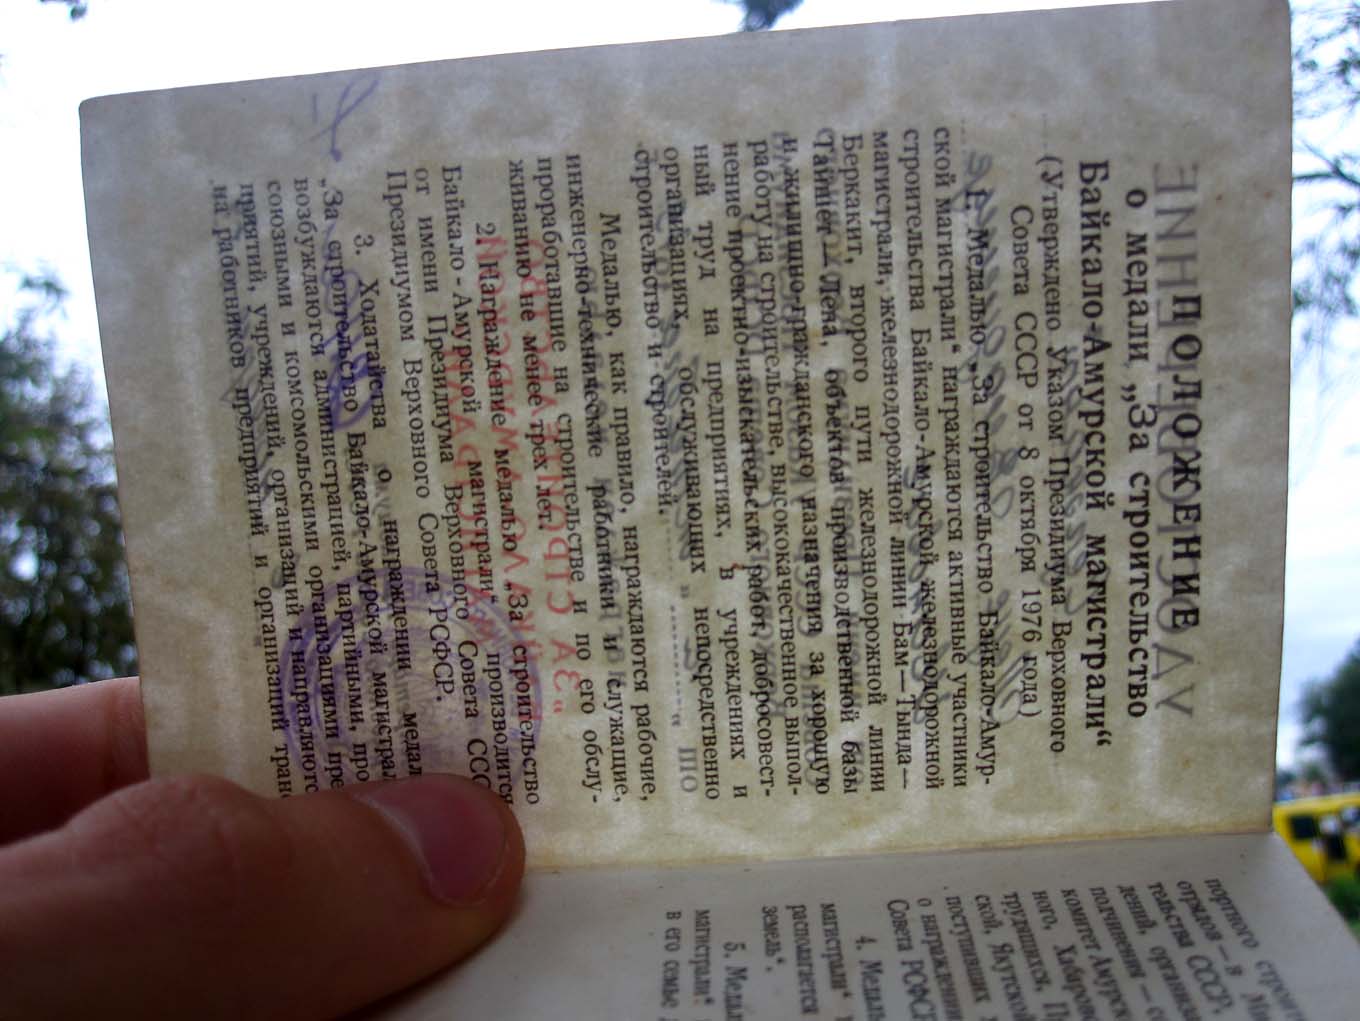 ПОЛОЖЕНИЕ
о медали „За строительство
Байкало-Амурской магистрали“
(Утверждено Указом Президиума Верховного
Совета СССР от 8 октября 1976 года)
1. Медалью „За строительство Байкало-Амур-
ской магистрали“ награждаются активные участники
строительства Байкало-Амурской железнодорожной
магистрали, железнодорожной линии Бам—Тында—
Беркакит, второго пути железнодорожной линии
Тайшет—Лена, объектов производственной базы
и жилищно-гражданского назначения за хорошую
работу на строительстве, высококачественное выпол-
нение проектно-изыскательских работ, добросовест-
ный труд на предприятиях, в учреждениях и
организациях, обслуживающих непосредственно
строительство и строителей.
Медалью, как правило, награждаются рабочие,
инженерно-технические работники и служащие,
проработавшие на строительстве и по его обслу-
живанию не менее трех лет.
2. Награждение медалью „За строительство
Байкало-Амурской магистрали“ производится
от имени Президиума Верховного Совета СССР
Президиумом Верховного Совета РСФСР.
3. Ходатайства о награждении
„За строительство Байкало-Амурской
возбуждаются администрацией, партийными,
союзными и комсомольскими организациями
приятий, учреждений, организаций и направляются
на работников предприятий и организаций
портного
отрядов — в
тельства СССР,
дений,
подчинения —
комитет
ного,
трудящихся,
ской, Якутской
поступивших
о награждении
Совета РСФСР
4.
магистрали“
располагается
земель“.
5.
магистрали“
в его семье